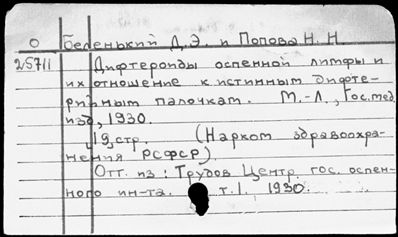 О Беленький Д.Э. и Попова Н. Н
25711 Дифтероиды оспенной лимфы и
их отношение к истинным дифте-
рийным палочкам. М.-Л., Гос.мед.
изд, 1930.
19 стр. (Нарком здравоохра-
нения РСФСР).
Отт. из: Трудов Центр. гос. оспен-
ного ин-та. т.I. 1930.